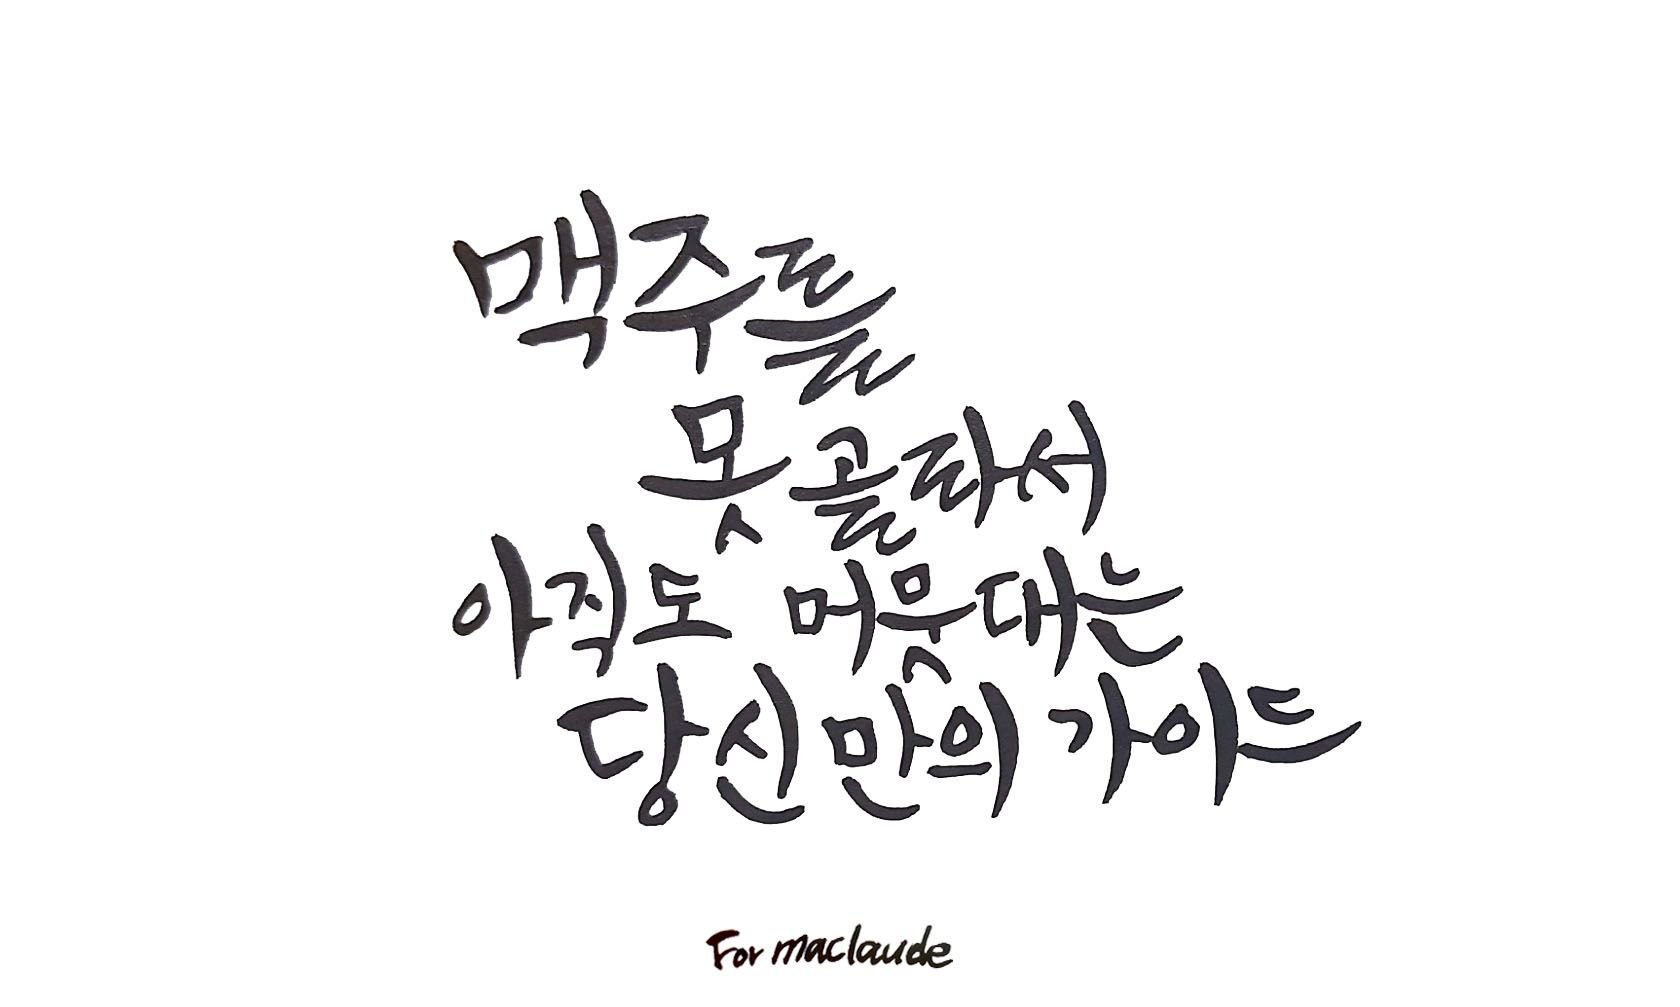 맥주를
못 골라서
아직도 머뭇대는
당신만의 가이드
For maclaude